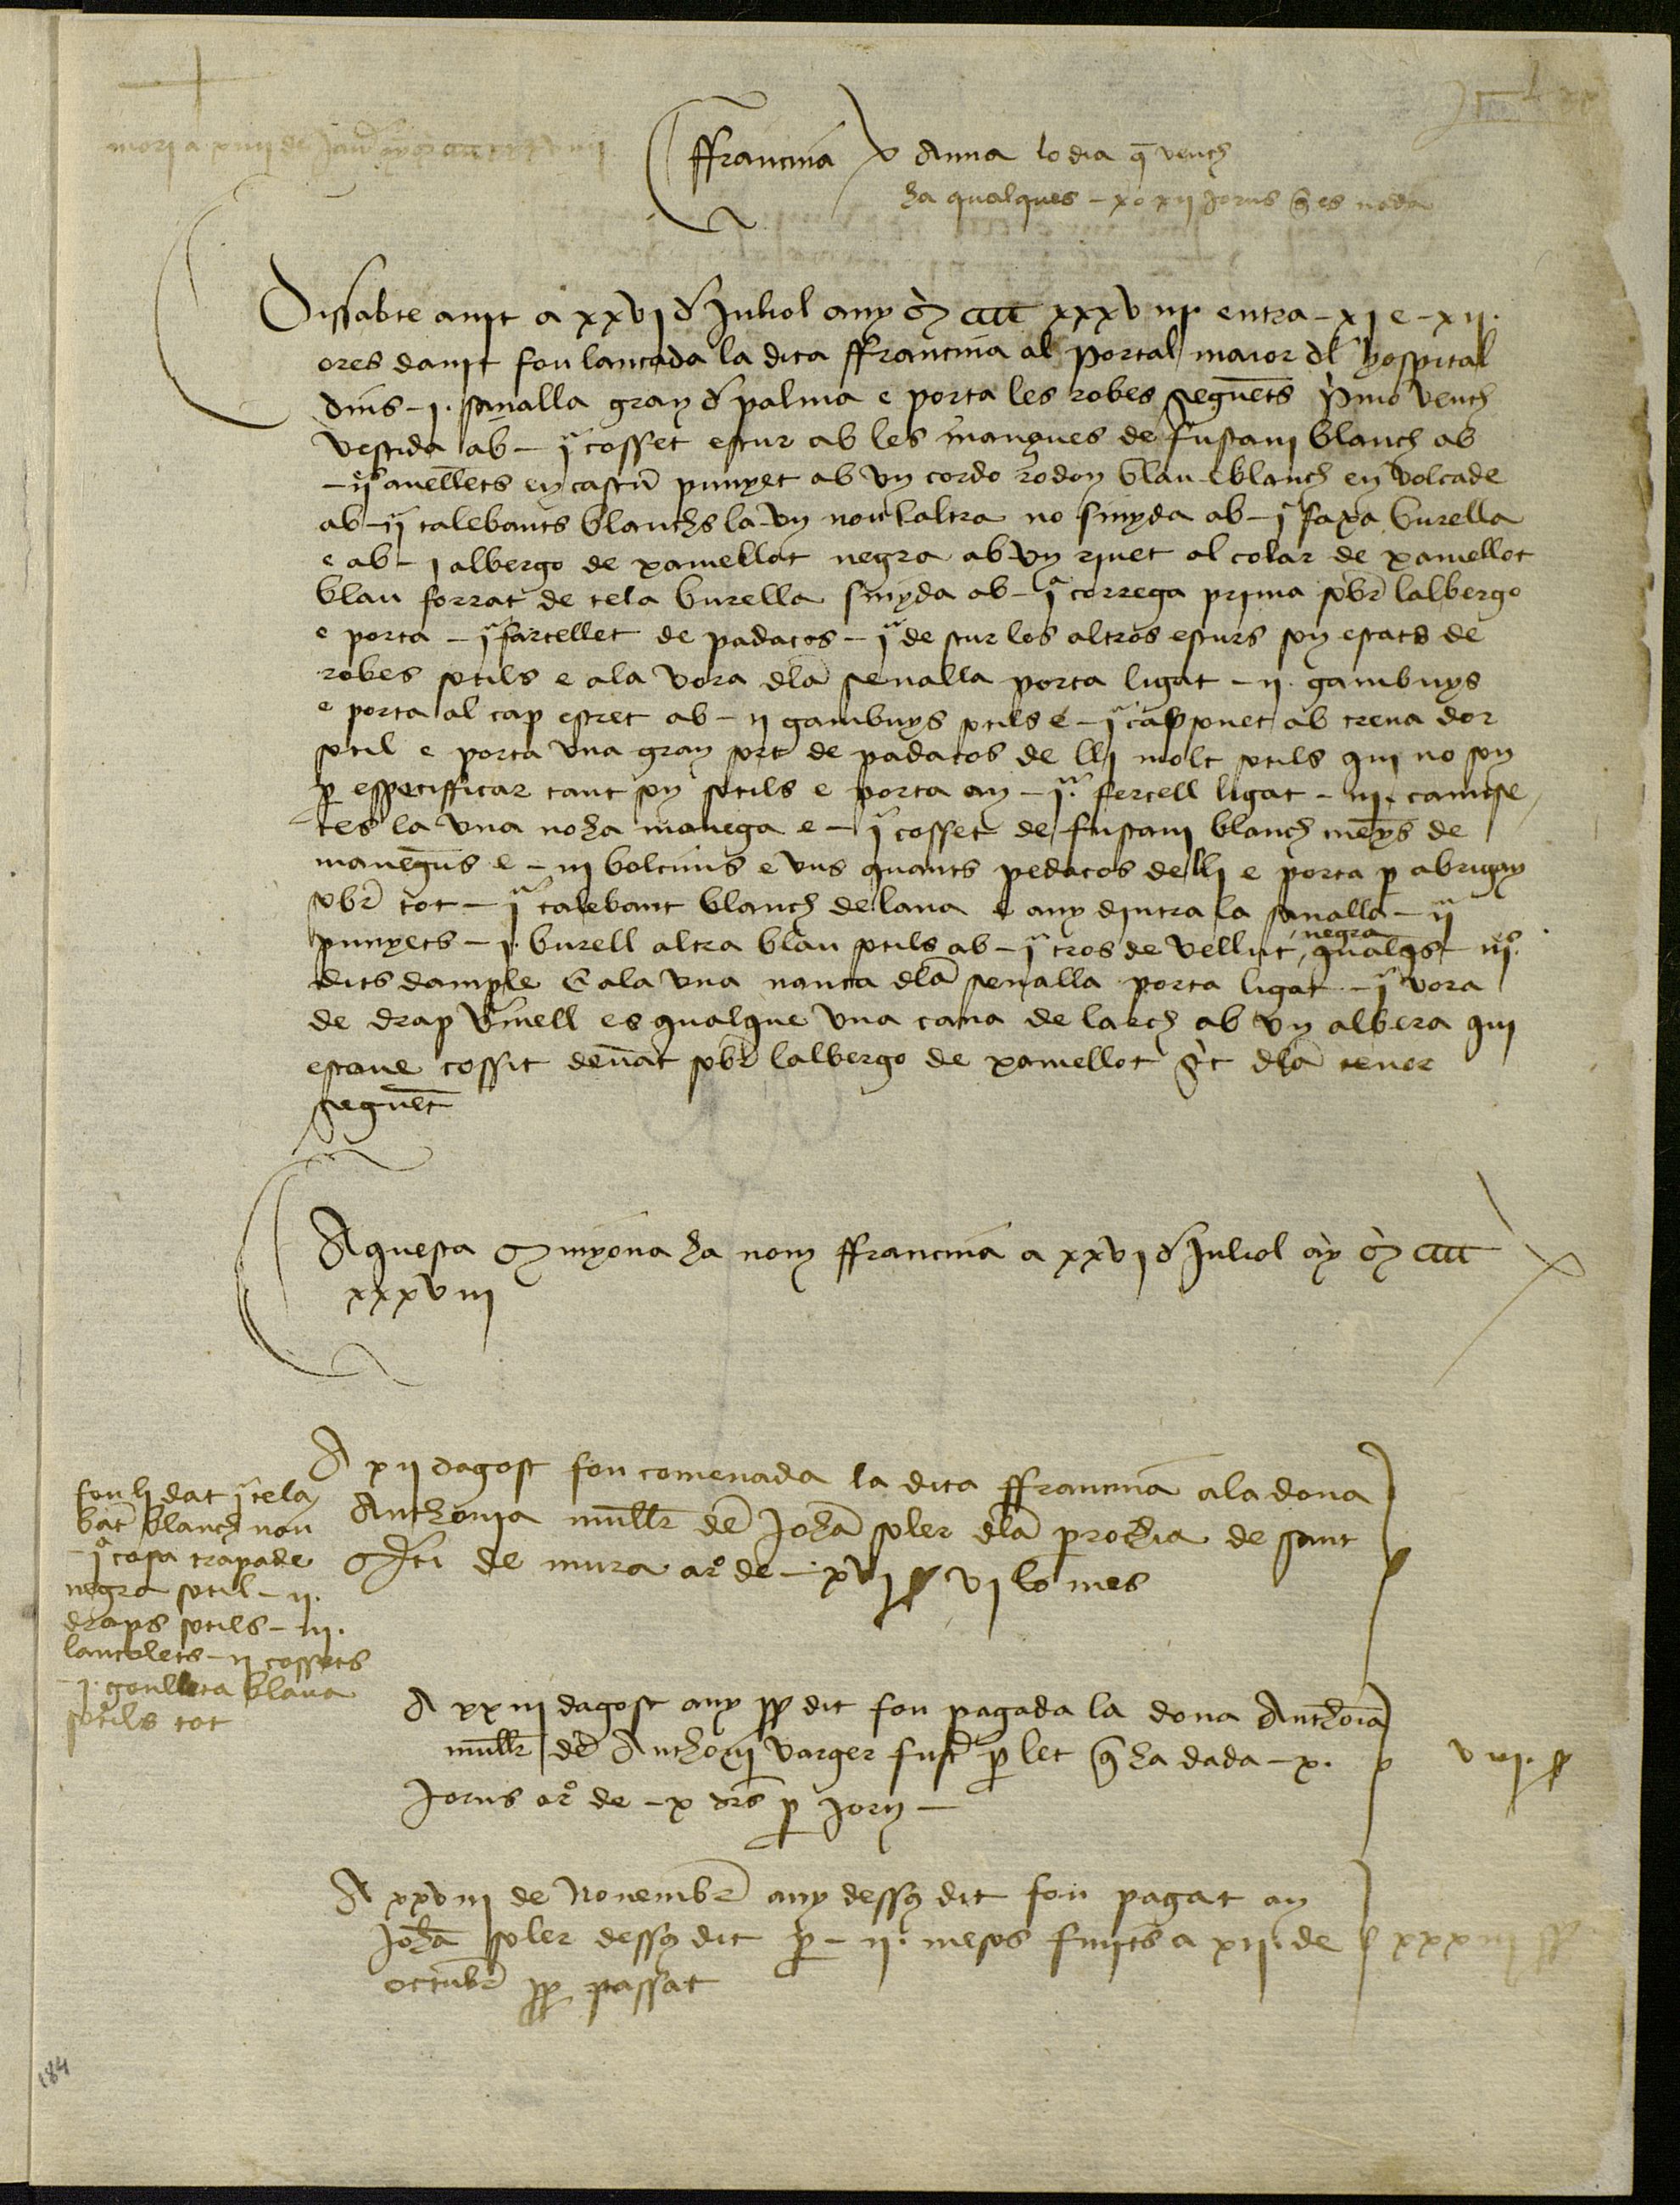 ffrancina v Anna lo dia q̄ vench
ha qualques - x o xii jorns q̄ es nada
Dissabte a nit a xxvi d̛ Juliol any M cccc xxxviii entra - xi e - xii.
ores danit fou lançada la dita ffrancina al portal maior dl̛ hospital
dins - i. sanalla gran d̛ palma e porta les robes seguēts p̛mo vench
vestida ab - i cosset escur ab les mangues de fustani blanch ab
- ii anellets en cascū punyet ab un cordo rodon blau e blanch en volcade
ab - ii calebants blanchs la un nou laltra no sinyda ab - i faxa burella
e ab - i albergo de xamellot negra ab un rivet al colar de xamellot
blau forrat de tela burella sinyda ab - i correga prima sobr̄ lalbergo
e porta - i farcellet de padaços - i de scur los altros escurs son estats de
robes sotils e a la vora dla senalla porta ligat - ii. gambuys
e porta al cap estret ab - ii gambuys sotils e - i capsonet ab trena dor
sotil e porta una gran sort de padaços de lli molt sotils qui no son
p̱ especifficar tant son sotils e porta an - i. fercell ligat - iii. camise
tes la una no ha manega e - i cosset de fustani blanch mēys de
manegues e - iii bolcims e uns quants pedaços de lli e porta p̱ abrigay
sobr̄ tot - i calebant blanch de lana e any dintra la sanalla - ii
punyets - i. burell altra blau sotils ab - i tros de vellut negra, qualqs iii.
dits dample E a la una nanca dla senalla porta ligat - i vora
de drap v̛mell es qualque una cana de larch ab un albera qui
estave cossit denāt sobr̄ lalbergo de xamellot sct̄ dla tenor
seguēt
Aquesta M inyona ha nom ffrancina a xxvi d̛ Juliol āy M cccc
xxxviii
A xii dagost fou comenada la dita ffrancina a la dona
Anthonia mullr̄ den Johā soler dla prochia de sant
Mti de mura a ro de - xvi ss vi lo mes
fou li dat i cela
bāt blanch nou
- i casa trapade
negra sotil - ii.
draps sotils - iii.
lancolets - ii cossets
- i. gonlleta blava
sotils tot
A xxiii dagost any pp dit fou pagada la dona Anthoīa
mullr̄ den Anthoni varger fust̄ p̱ let q̄ ha dada - x.
jorns a ro de - x drs p̱ jorn - viii. ss
A xxviii de Novembr̄ any dessus dit fou pagat an
Johā soler dessus dit p̱ - ii. mesos finits a xii. de
octubr̄ pp passat xxxiii ss
184